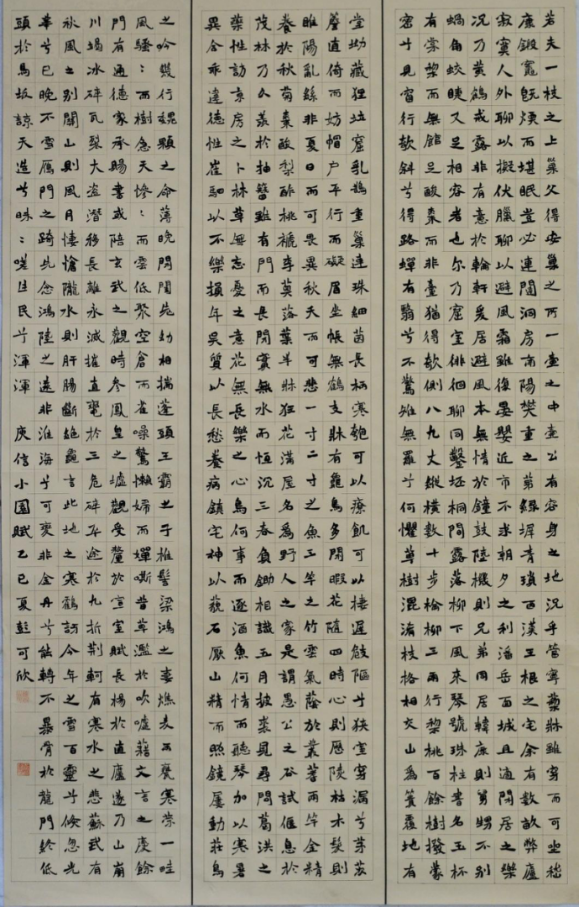 若夫一枝之上巢父得安巢之所一壺之中壺公有容身之地況乎管寧藜牀雖穿而可坐嵇
康鍛竈既煗而堪眠豈必連闥洞房南陽樊重之第綠墀青瑣西漢王根之宅余有數畝弊廬
寂寞人外聊以擬伏臘聊以避風霜雖復晏嬰近市不求朝夕之利潘岳面城且適閒居之樂
況乃黃鶴戒露非有意於輪軒爰居避風本無情於鐘鼓陸機則兄弟同居韓康則舅甥不別
蝸角蚊睫又足相容者也尔乃窟室徘徊聊同鑿坯桐間露落柳下風來琴號珠柱書名玉杯
有棠梨而無館足酸棗而非臺猶得欹側八九丈縱橫數十步榆柳三兩行梨桃百餘樹撥蒙
密兮見窗行欹斜兮得路蟬有翳兮不驚雉無羅兮何懼草樹混淆枝格相交山為簣覆地有
堂坳藏狸並窟乳鵲重巢連珠細菌長柄寒匏可以療飢可以棲遲崎嶇兮狹室穿漏兮茅茨
簷直倚而妨帽戶平行而礙眉坐帳無鶴支牀有龜鳥多閒暇花隨四時心則歷陵枯木髮則
睢陽亂絲非夏日而可畏異秋天而可悲一寸二寸之魚三竿之竹雲氣蔭於叢蓍兩竿金精
養於秋菊棗酸梨酢桃榹李薁落葉半牀狂花滿屋名為野人之家是謂愚公之谷試偃息於
茂林乃久羨於抽簪雖有門而長閉實無水而恒沉三春負鋤相識五月披裘見尋問葛洪之
藥性訪京房之卜林草無忘憂之意花無長樂之心鳥何事而逐酒魚何情而聽琴加以寒暑
異令乖違德性崔駰以不樂損年吳質以長愁養病鎮宅神以薶石厭山精而照鏡屢動莊舄
之吟幾行魏顆之命薄晚閒閨老幼相攜蓬頭王霸之子椎髻梁鴻之妻燋麥兩甕寒菜一畦
風騷々而樹急天慘々而雲低聚空倉而雀噪驚懶婦而蟬嘶昔草濫於吹噓藉文言之慶餘
門有通德家承賜書或陪玄武之觀時參鳳皇之墟觀受釐於宣室賦長楊於直廬遂乃山崩
川竭冰碎瓦裂大盜潛移長離永滅摧直轡於三危碎平途於九折荊軻有寒水之悲蘇武有
秋風之別關山則風月悽愴隴水則肝腸斷絕龜言此地之寒鶴訝今年之雪百靈兮倏忽光
華兮已晚不雪雁門之踦先念鴻陸之遠非淮海兮可變非金丹兮能轉不暴骨於龍門終低
頭於馬坂諒天造兮昧々嗟生民兮渾渾 庾信小園賦乙巳夏彭可欣